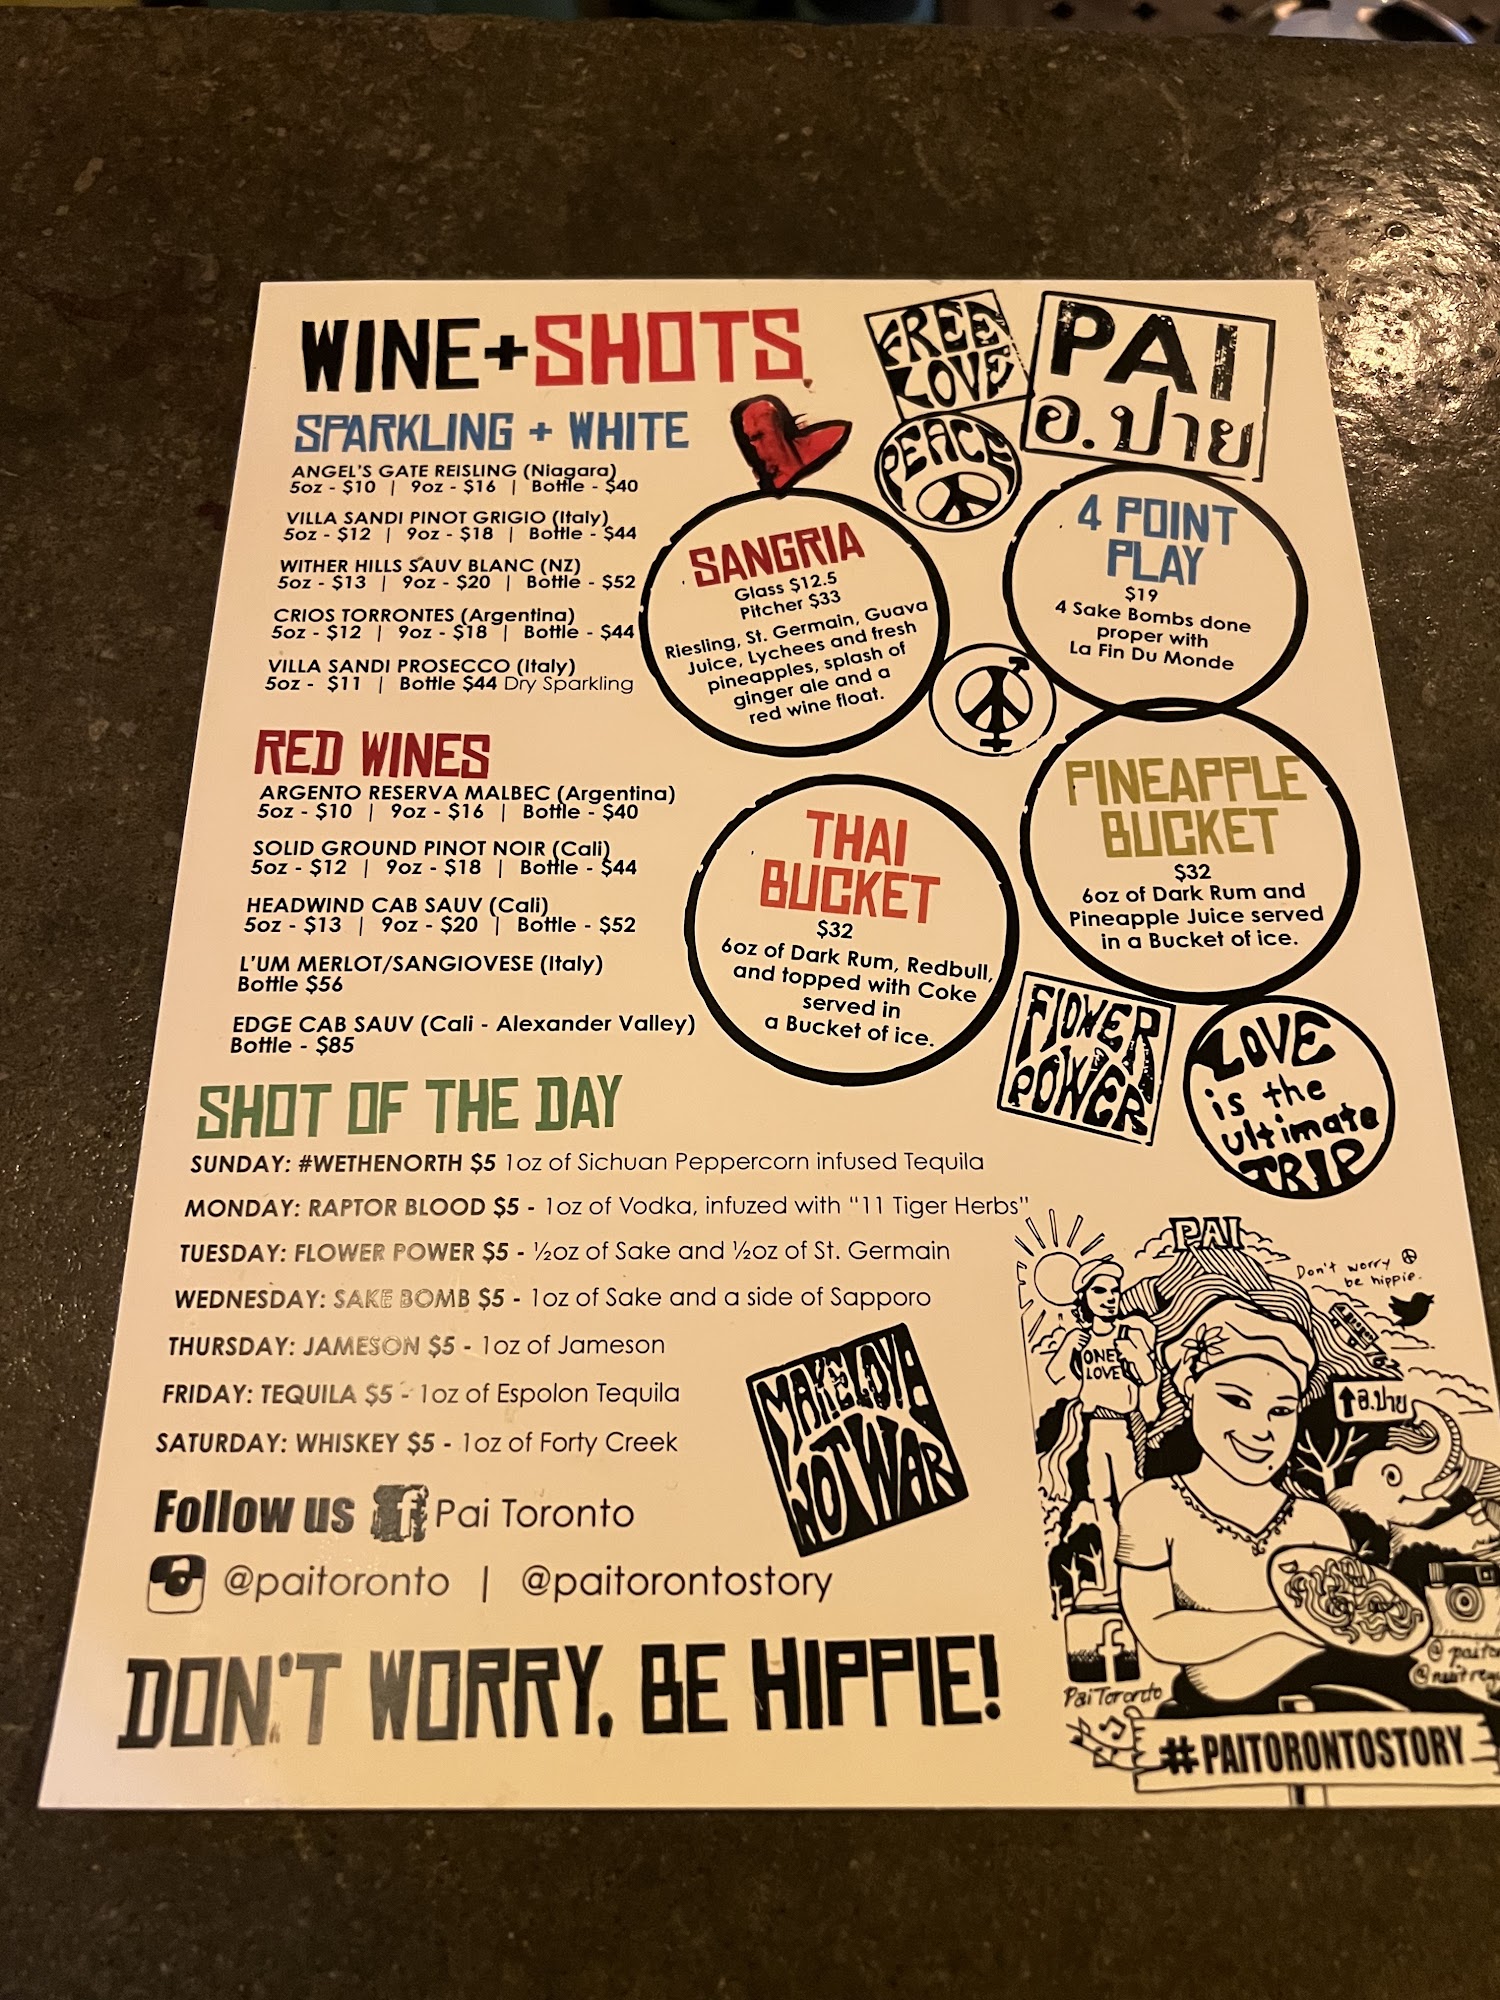 WINE+SHOTS
SPARKLING + WHITE
ANGEL'S GATE REISLING (Niagara)
5oz - $10 | 9oz - $16 | Bottle - $40
VILLA SANDI PINOT GRIGIO (Italy)
5oz - $12 | 9oz - $18 | Bottle - $44
WITHER HILLS SAUV BLANC (NZ)
5oz - $13 | 9oz - $20 | Bottle - $52
CRIOS TORRONTES (Argentina)
5oz - $12 | 9oz - $18 | Bottle - $44
VILLA SANDI PROSECCO (Italy)
5oz - $11 | Bottle $44 Dry Sparkling
RED WINES
ARGENTO RESERVA MALBEC (Argentina)
5oz - $10 | 9oz - $16 | Bottle - $40
SOLID GROUND PINOT NOIR (Cali)
5oz - $12 | 9oz - $18 | Bottle - $44
HEADWIND CAB SAUV (Cali)
5oz - $13 | 9oz - $20 | Bottle - $52
L'UM MERLOT/SANGIOVESE (Italy)
Bottle $56
EDGE CAB SAUV (Cali - Alexander Valley)
Bottle - $85
FREE
LOVE
PAI
อ.ปาย
PEACE
SANGRIA
Glass $12.5
Pitcher $33
Riesling, St. Germain, Guava
Juice, Lychees and fresh
pineapples, splash of
ginger ale and a
red wine float.
4 POINT
PLAY
$19
4 Sake Bombs done
proper with
La Fin Du Monde
THAI
BUCKET
$32
6oz of Dark Rum, Redbull,
and topped with Coke
served in
a Bucket of ice.
PINEAPPLE
BUCKET
$32
6oz of Dark Rum and
Pineapple Juice served
in a Bucket of ice.
FLOWER
POWER
LOVE
is the
ultimate
TRIP
SHOT OF THE DAY
SUNDAY: #WETHENORTH $5 1oz of Sichuan Peppercorn infused Tequila
MONDAY: RAPTOR BLOOD $5 - 1oz of Vodka, infuzed with "11 Tiger Herbs"
TUESDAY: FLOWER POWER $5 - ½oz of Sake and ½oz of St. Germain
WEDNESDAY: SAKE BOMB $5 - 1oz of Sake and a side of Sapporo
THURSDAY: JAMESON $5 - 1oz of Jameson
FRIDAY: TEQUILA $5 - 1oz of Espolon Tequila
SATURDAY: WHISKEY $5 - 1oz of Forty Creek
MAKE LOVE
NOT WAR
Follow us f Pai Toronto
@paitoronto | @paitorontostory
DON'T WORRY, BE HIPPIE!
PAI
Don't worry
be hippie.
ONE
LOVE
อ.ปาย
f
Pai Toronto
#PAITORONTOSTORY